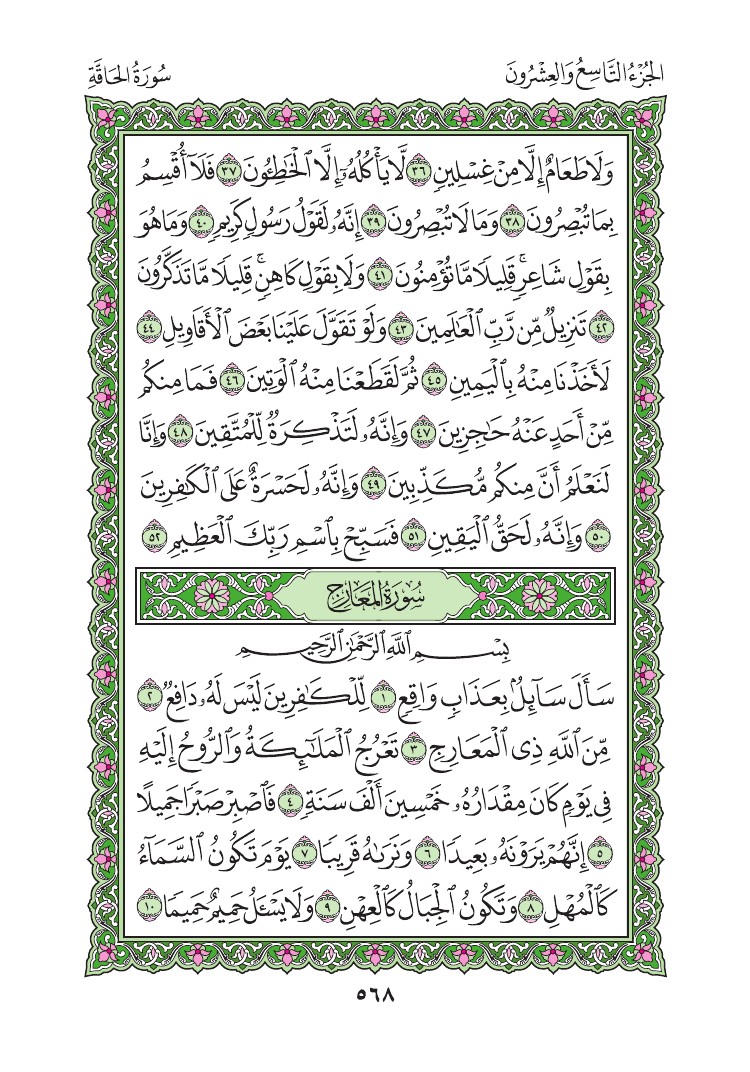 الجُزْءُ التَّاسِعُ وَالعِشْرُونَ
سُورَةُ الحَاقَّةِ
وَلَا طَعَامٌ إِلَّا مِنْ غِسْلِينٍ ٣٦ لَّا يَأْكُلُهُۥٓ إِلَّا ٱلْخَٰطِـُٔونَ ٣٧ فَلَآ أُقْسِمُ
بِمَا تُبْصِرُونَ ٣٨ وَمَا لَا تُبْصِرُونَ ٣٩ إِنَّهُۥ لَقَوْلُ رَسُولٍ كَرِيمٍ ٤٠ وَمَا هُوَ
بِقَوْلِ شَاعِرٍ ۚ قَلِيلًا مَّا تُؤْمِنُونَ ٤١ وَلَا بِقَوْلِ كَاهِنٍ ۚ قَلِيلًا مَّا تَذَكَّرُونَ
٤٢ تَنزِيلٌ مِّن رَّبِّ ٱلْعَٰلَمِينَ ٤٣ وَلَوْ تَقَوَّلَ عَلَيْنَا بَعْضَ ٱلْأَقَاوِيلِ ٤٤
لَأَخَذْنَا مِنْهُ بِٱلْيَمِينِ ٤٥ ثُمَّ لَقَطَعْنَا مِنْهُ ٱلْوَتِينَ ٤٦ فَمَا مِنكُم
مِّنْ أَحَدٍ عَنْهُ حَٰجِزِينَ ٤٧ وَإِنَّهُۥ لَتَذْكِرَةٌ لِّلْمُتَّقِينَ ٤٨ وَإِنَّا
لَنَعْلَمُ أَنَّ مِنكُم مُّكَذِّبِينَ ٤٩ وَإِنَّهُۥ لَحَسْرَةٌ عَلَى ٱلْكَٰفِرِينَ
٥٠ وَإِنَّهُۥ لَحَقُّ ٱلْيَقِينِ ٥١ فَسَبِّحْ بِٱسْمِ رَبِّكَ ٱلْعَظِيمِ ٥٢
سُورَةُ المَعَارِجِ
بِسْمِ ٱللَّهِ ٱلرَّحْمَٰنِ ٱلرَّحِيمِ
سَأَلَ سَآئِلٌۢ بِعَذَابٍ وَاقِعٍ ١ لِّلْكَٰفِرِينَ لَيْسَ لَهُۥ دَافِعٌ ٢
مِّنَ ٱللَّهِ ذِى ٱلْمَعَارِجِ ٣ تَعْرُجُ ٱلْمَلَٰٓئِكَةُ وَٱلرُّوحُ إِلَيْهِ
فِى يَوْمٍ كَانَ مِقْدَارُهُۥ خَمْسِينَ أَلْفَ سَنَةٍ ٤ فَٱصْبِرْ صَبْرًا جَمِيلًا
٥ إِنَّهُمْ يَرَوْنَهُۥ بَعِيدًا ٦ وَنَرَىٰهُ قَرِيبًا ٧ يَوْمَ تَكُونُ ٱلسَّمَآءُ
كَٱلْمُهْلِ ٨ وَتَكُونُ ٱلْجِبَالُ كَٱلْعِهْنِ ٩ وَلَا يَسْـَٔلُ حَمِيمٌ حَمِيمًا ١٠
٥٦٨